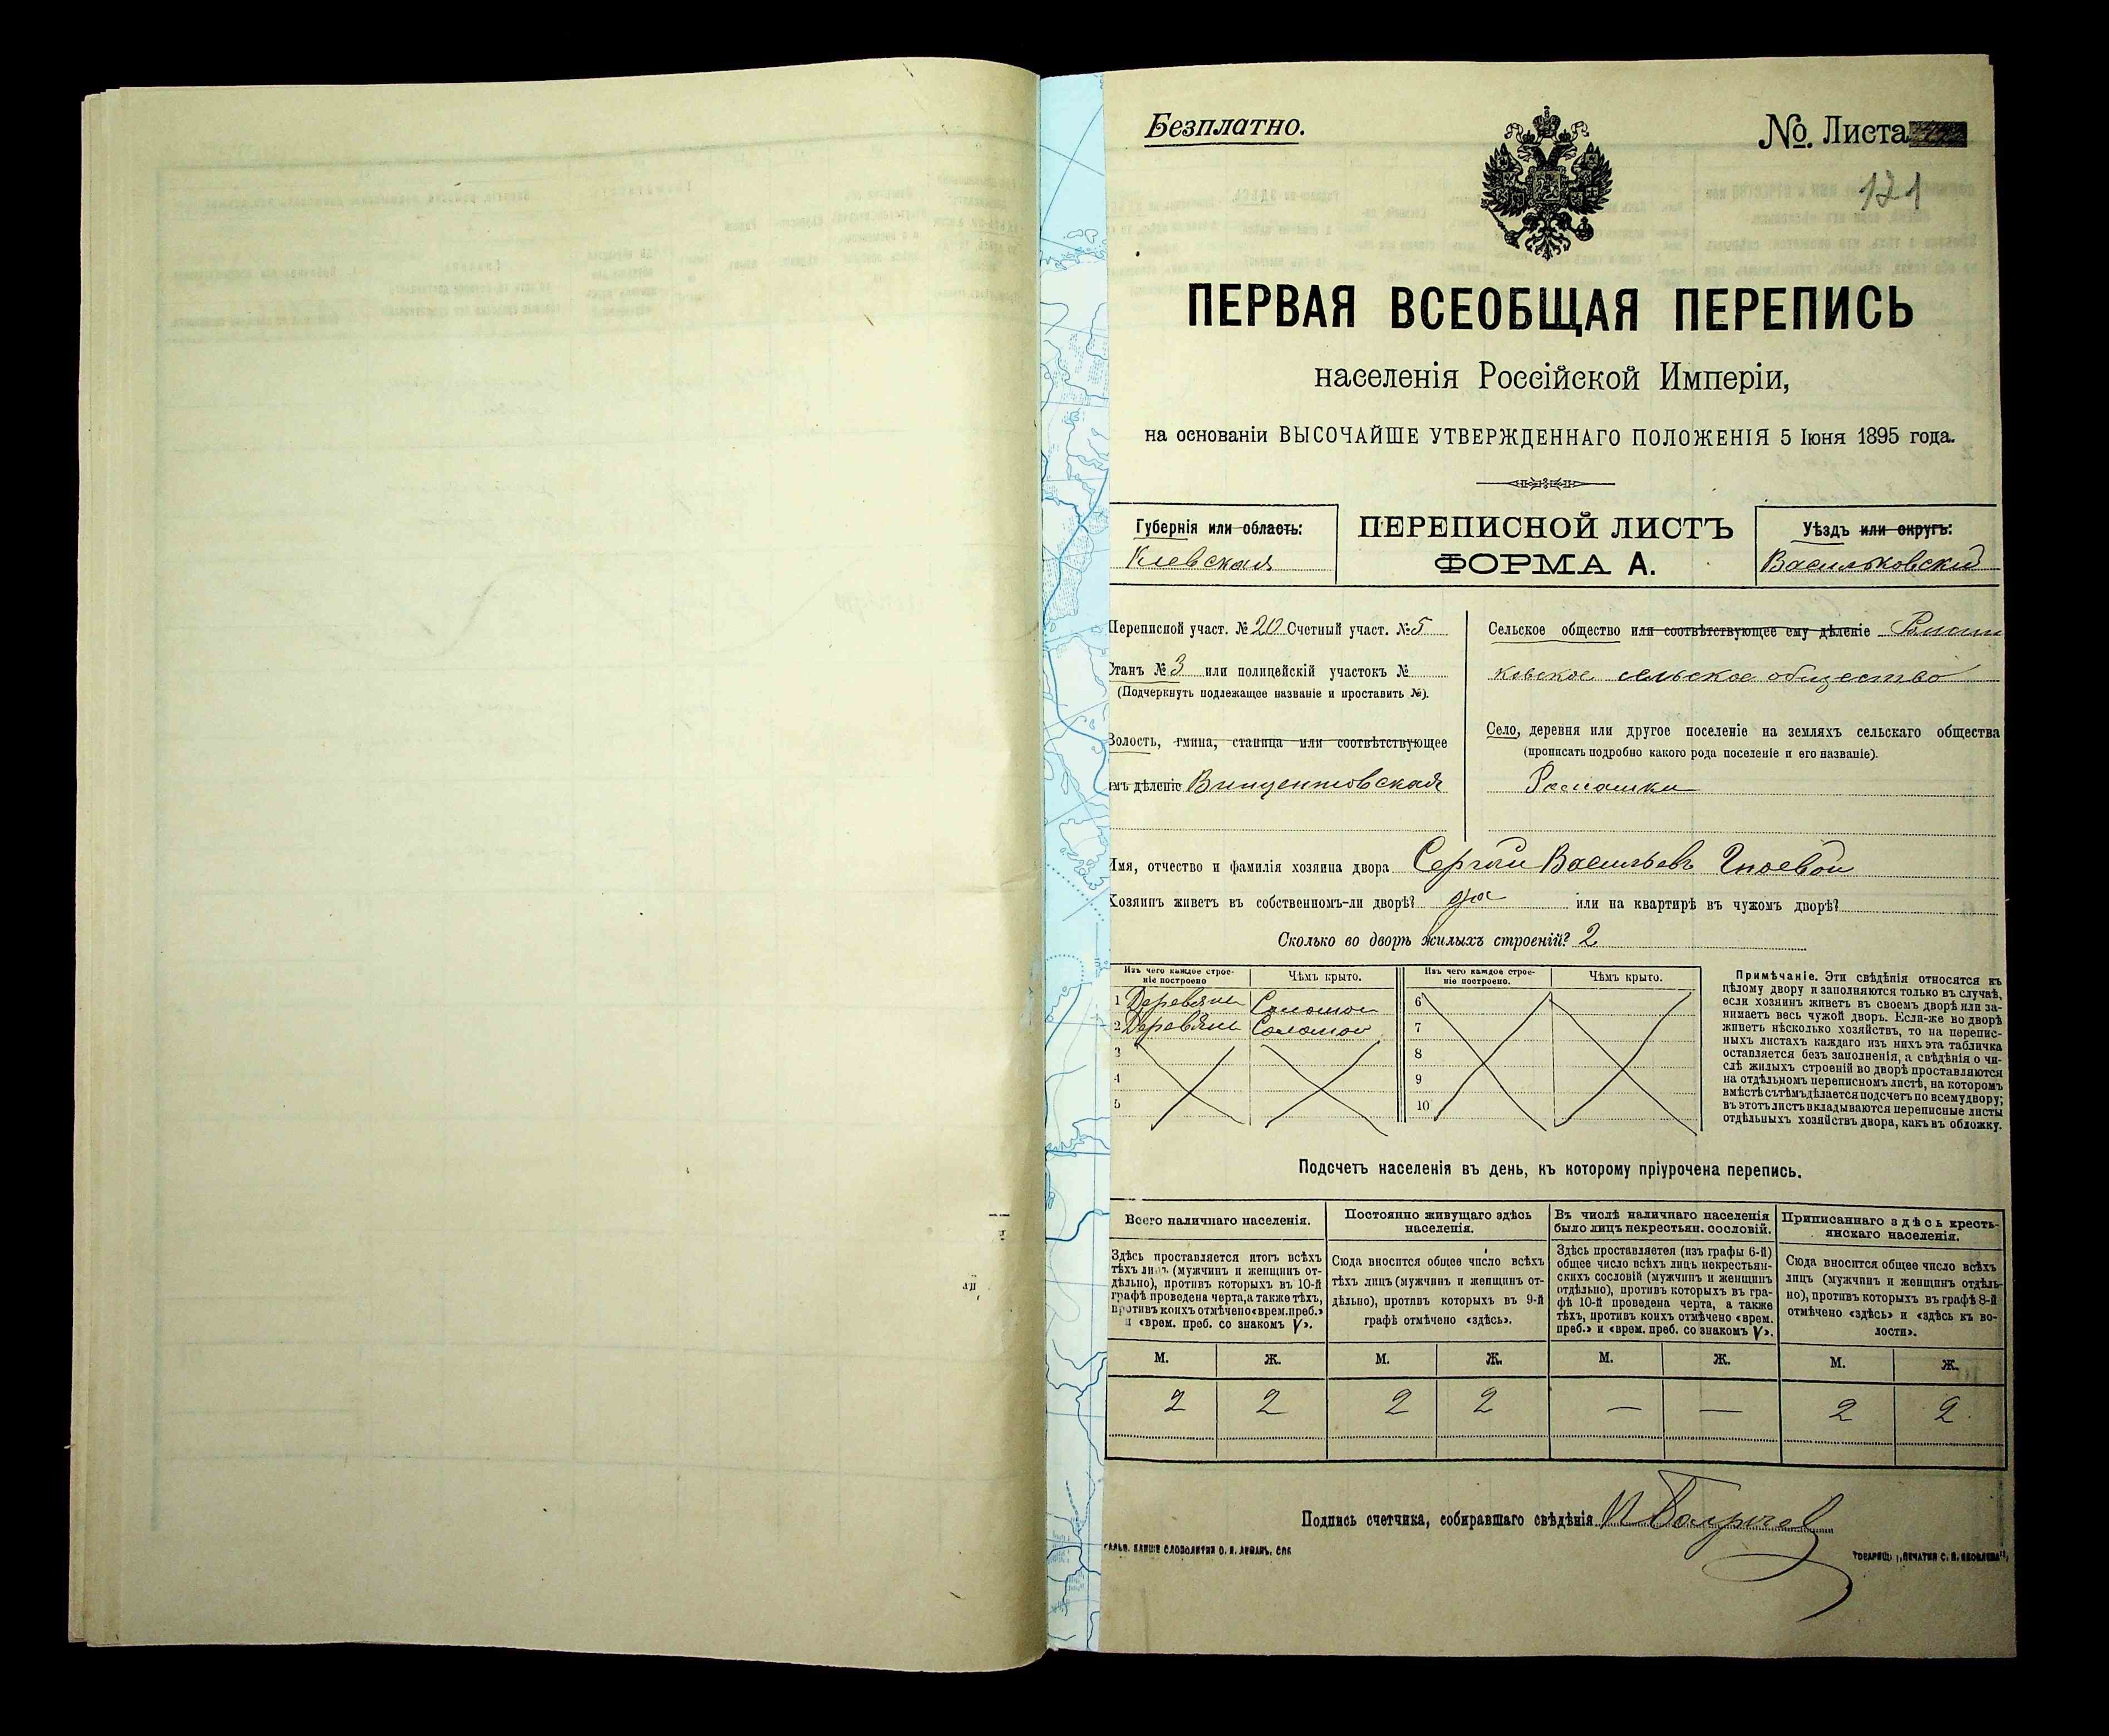 Безплатно.
№ Листа
121
ПЕРВАЯ ВСЕОБЩАЯ ПЕРЕПИСЬ
населенія Россійской Имперіи,
на основаніи ВЫСОЧАЙШЕ УТВЕРЖДЕННАГО ПОЛОЖЕНІЯ 5 Іюня 1895 года.
Губернія или область:
Киевская
ПЕРЕПИСНОЙ ЛИСТЪ
ФОРМА А.
Уѣздъ или округъ:
Васильковский
Переписной участ. № 20 Счетный участ. № 5
Станъ № 3 или полицейскій участокъ №
(Подчеркнуть подлежащее названіе и проставить №).
Волость, гмина, станица или соотвѣтствующее
имъ дѣленіе Винцентовская
Сельское общество или соотвѣтствующее ему дѣленіе
ковское сельское общество
Село, деревня или другое поселеніе на земляхъ сельскаго общества
(прописать подробно какого рода поселеніе и его названіе).
Имя, отчество и фамилія хозяина двора Сергѣй Васильевъ Гноевой
Хозяинъ живетъ въ собственномъ-ли дворѣ? да или на квартирѣ въ чужомъ дворѣ?
Сколько во дворѣ жилыхъ строеній? 2
Изъ чего каждое строеніе построено
Чѣмъ крыто.
Изъ чего каждое строеніе построено.
Чѣмъ крыто.
1 Деревяни Соломой 6
2 Деревяни Соломой 7
3 8
4 9
5 10
Примѣчаніе. Эти свѣдѣнія относятся къ
цѣлому двору и заполняются только въ случаѣ,
если хозяинъ живетъ въ своемъ дворѣ или за-
нимаетъ весь чужой дворъ. Если-же во дворѣ
живетъ нѣсколько хозяйствъ, то на перепис-
ныхъ листахъ каждаго изъ нихъ эта табличка
оставляется безъ заполненія, а свѣдѣнія о чи-
слѣ жилыхъ строеній во дворѣ проставляются
на отдѣльномъ переписномъ листѣ, на которомъ
вмѣстѣ съ тѣмъ дѣлается подсчетъ по всему двору;
въ этотъ листъ вкладываются переписные листы
отдѣльныхъ хозяйствъ двора, какъ въ обложку.
Подсчетъ населенія въ день, къ которому пріурочена перепись.
Всего наличнаго населенія.
Здѣсь проставляется итогъ всѣхъ
тѣхъ лицъ (мужчинъ и женщинъ от-
дѣльно), противъ которыхъ въ 10-й
графѣ проведена черта, а также тѣхъ,
противъ коихъ отмѣчено «врем. преб.»
и «врем. преб. со знакомъ V».
Постоянно живущаго здѣсь
населенія.
Сюда вносится общее число всѣхъ
тѣхъ лицъ (мужчинъ и женщинъ от-
дѣльно), противъ которыхъ въ 9-й
графѣ отмѣчено «здѣсь».
Въ числѣ наличнаго населенія
было лицъ некрестьян. сословій.
Здѣсь проставляется (изъ графы 6-й)
общее число всѣхъ лицъ некрестьян-
скихъ сословій (мужчинъ и женщинъ
отдѣльно), противъ которыхъ въ гра-
фѣ 10-й проведена черта, а также
тѣхъ, противъ коихъ отмѣчено «врем.
преб.» и «врем. преб. со знакомъ V».
Приписаннаго здѣсь кресть-
янскаго населенія.
Сюда вносится общее число всѣхъ
лицъ (мужчинъ и женщинъ отдѣль-
но), противъ которыхъ въ графѣ 8-й
отмѣчено «здѣсь» и «здѣсь въ во-
лости».
М. Ж. М. Ж. М. Ж. М. Ж.
2 2 2 2 — — 2 2
Подпись счетчика, собиравшаго свѣдѣнія
ГАЛЬВ. КЛИШЕ СЛОВОЛИТНИ О. И. ЛЕМАНЪ, СПБ
ТОВАРИЩ. „ПЕЧАТНЯ С. П. ЯКОВЛЕВА“